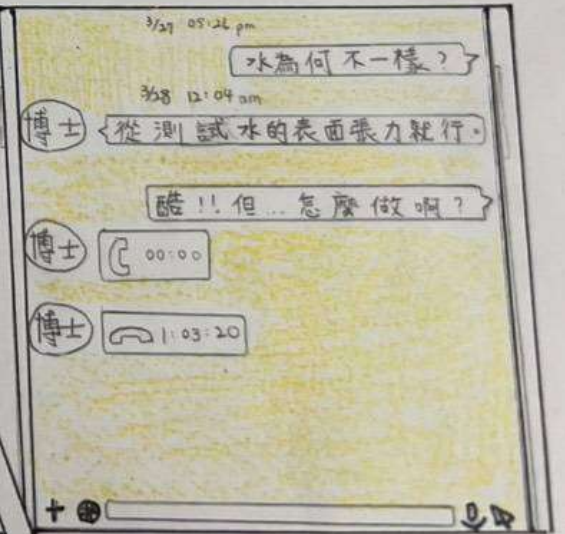 3/27 05:26 pm
水為何不一樣？
3/28 12:04 am
博士
從測試水的表面張力就行。
酷!!但...怎麼做啊？
博士
00:00
博士
1:03:20